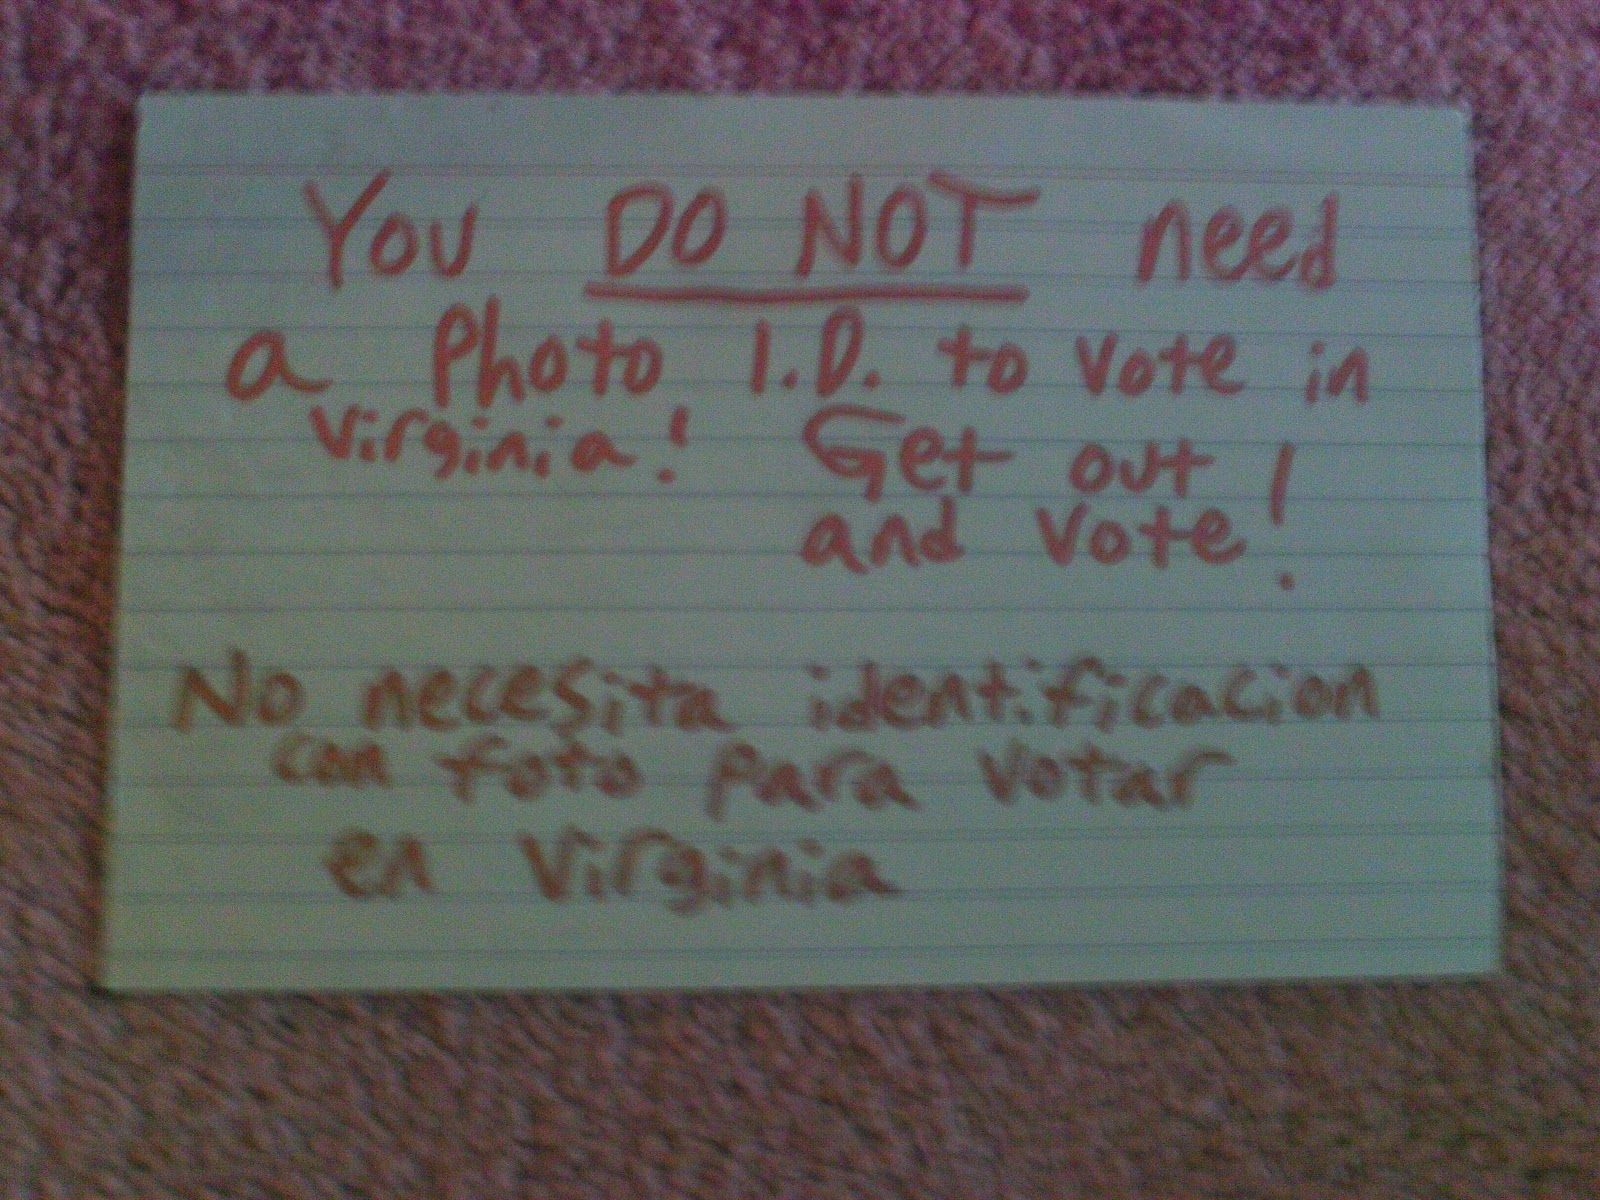 You DO NOT need
a Photo I.D. to vote in
Virginia! Get out
and vote!
No necesita identificacion
con foto para votar
en Virginia